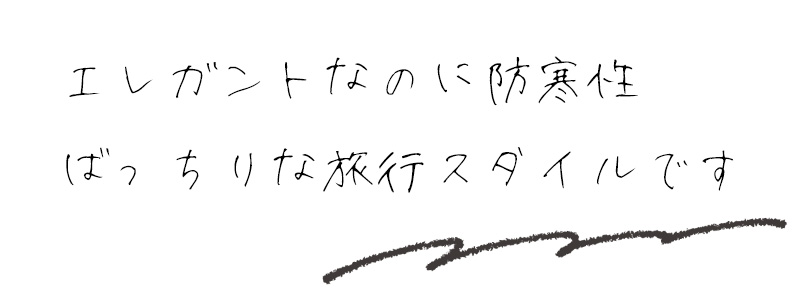 エレガントなのに防寒性
ばっちりな旅行スタイルです